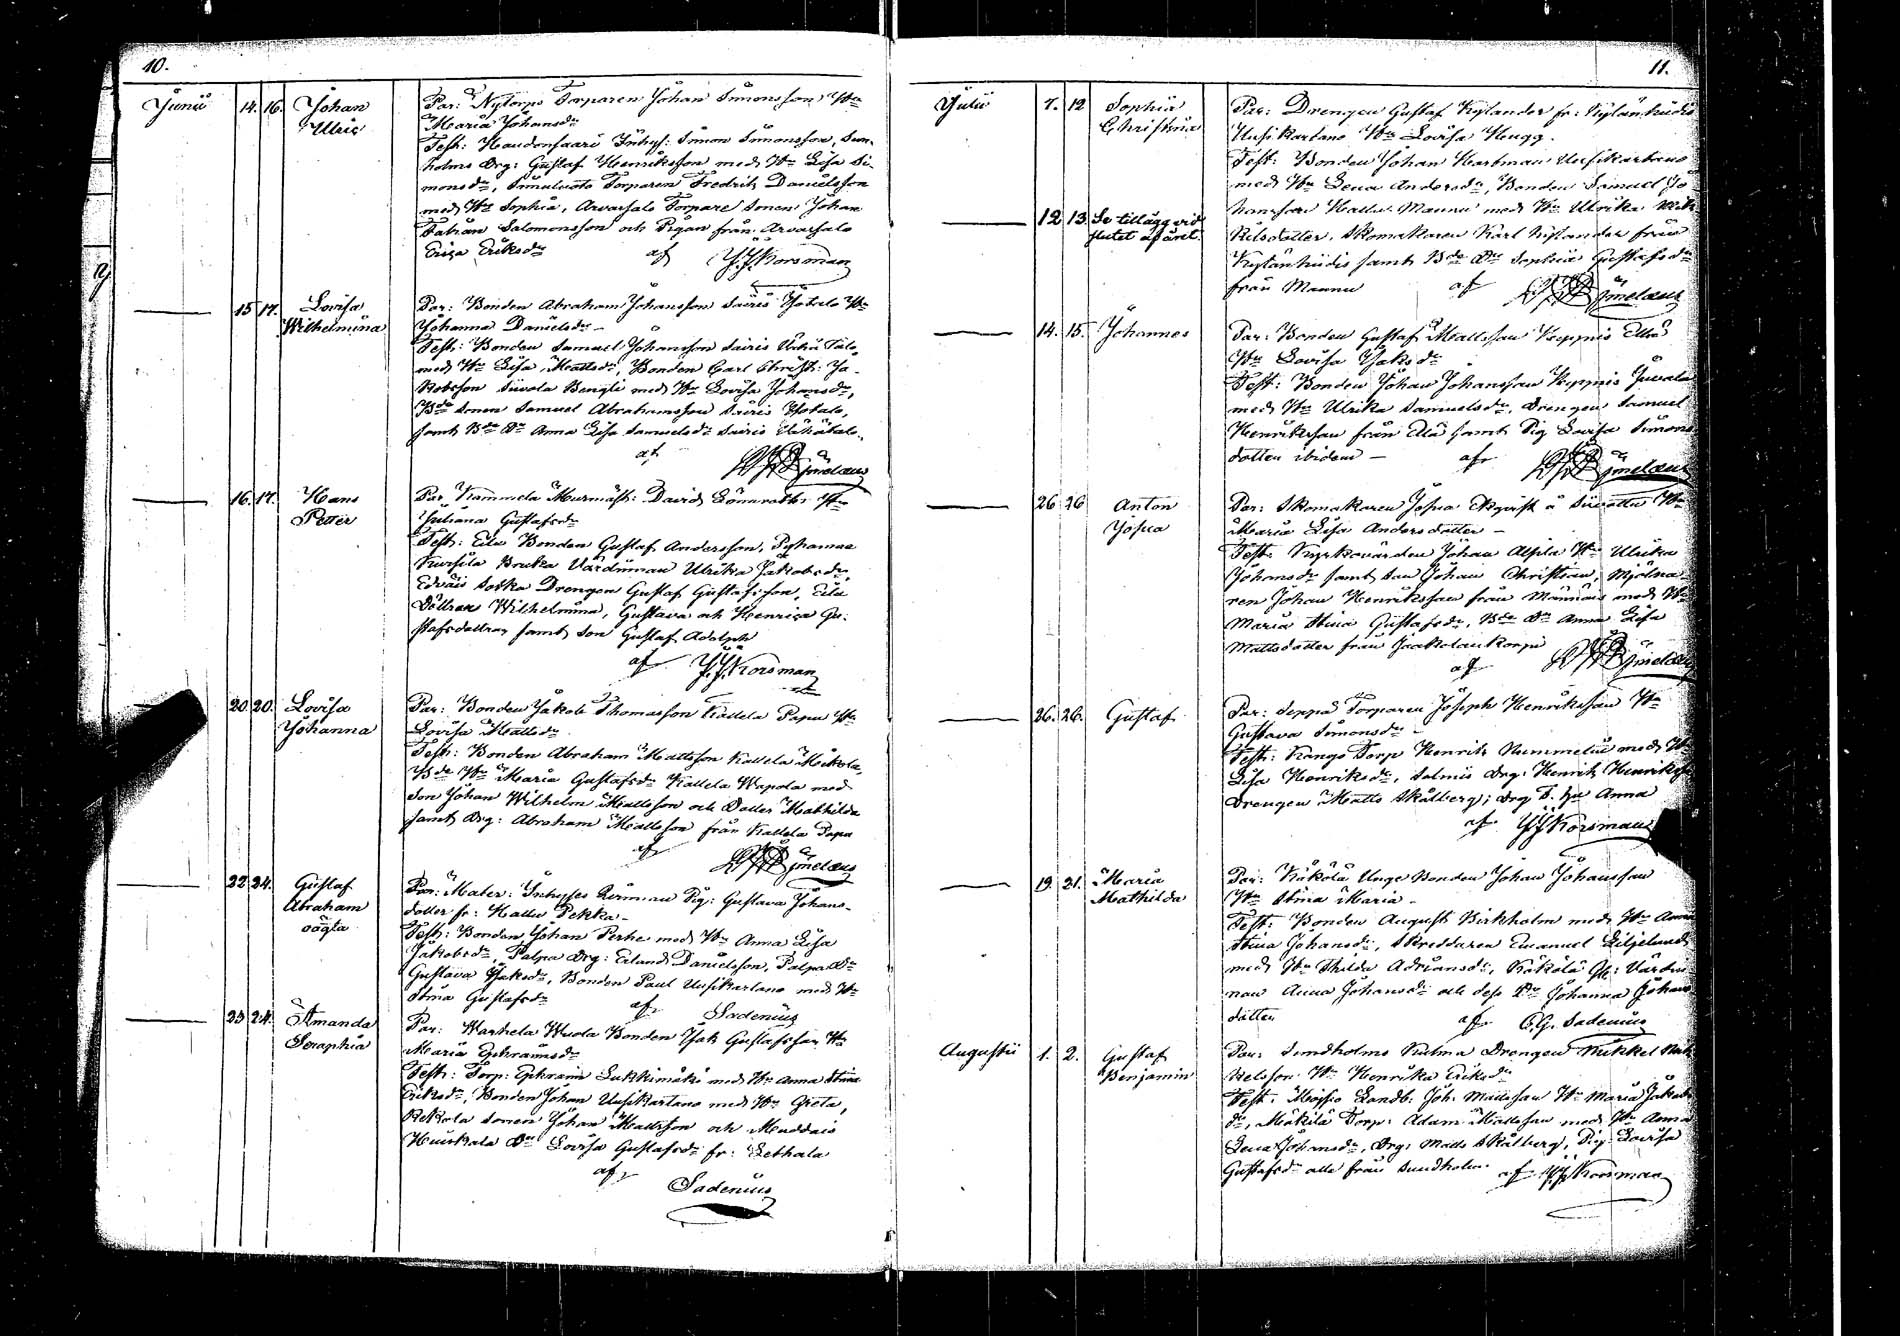 10.
Junii 14. 16. Johan Ulric
Par: Nytorps Torparen Johan Simonsson Hu
Maria Johansdr
Test: Haudonsaari Inhys: Simon Simonsson, Sun-
holms Drg: Gustaf Henriksson med Hu Lisa Si-
monsdr, Torparen Fredrik Danielsson
med Hu Sophia, Arvassalo Torpare sonen Johan
Fabian Salomonsson och Pigan från Arvassalo
Erica Eriksdr af J.J. Korsman
15 17. Lovisa Wilhelmina
Par: Bonden Abraham Johansson Sairis Yötalo Hu
Johanna Danielsdr –
Test: Bonden Samuel Johansson Sairis
med Hu Lisa Mattsdr, Bonden Carl Christ: Ja-
kobsson Siivola Bengti med Hu Lovisa Johansdr,
Bde sonen Samuel Abrahamsson Sairis Yötalo,
samt Bde Dr Anna Lisa Samuelsdr Sairis
af
16. 17. Hans Petter
Par: Kammela Murmäst: David Hu
Juliana Gustafsdr
Test: Eilu Bonden Gustaf Andersson, Pyhamaa
Kursila Bruka Värdinnan Ulrika Jakobsdr,
Edväis Sorka Drengen Gustaf Gustafsson, Eilu
Döttrar Wilhelmina, Gustava och Henrica Gu-
stafsdöttrar samt son Gustaf Adolph
af J.J. Korsman
20 20. Lovisa Johanna
Par: Bonden Jakob Thomasson Kallela Papu Hu
Lovisa Mattsdr
Test: Bonden Abraham Mattsson Kallela Mikola,
Bde Hu Maria Gustafsdr Kallela Wapola med
son Johan Wilhelm Mattsson och Dotter Mathilda
samt Drg: Abraham Mattsson från Kallela Papu
af
22 24. Gustaf Abraham oägta
Par: Mater: Inhyses Qvinnan Pig: Gustava Johans-
dotter fr: Kallu Pekka –
Test: Bonden Johan Perhe med Hu Anna Lisa
Jakobsdr, Palpa Drg: Erland Danielsson, Palpa Dr
Gustava Isaksdr, Bonden Paul Uusikartano med Hu
Stina Gustafsdr af Sadenius
23 24. Amanda Seraphia
Par: Warhela Wuola Bonden Isak Gustafsson Hu
Maria Ephraimsdr
Test: Torp: Ephraim Lukkimäki med Hu Anna Stina
Eriksdr, Bonden Johan Uusikartano med Hu Greta,
Kekola sonen Johan Mattsson och Muddais
Huiskala Dr Lovisa Gustafsdr fr: Lethala
af
Sadenius
11.
Julii 7. 12 Sophia Christina
Par: Drengen Gustaf Kylander fr: Kylänhiidis
Uusikartano Hu Lovisa Hugg.
Test: Bonden Johan Karlman Uusikartano
med Hu Lena Andersdr, Bonden Samuel Jo-
hansson Kallu Mannu med Hu Ulrika Mik-
kelsdotter, Skomakaren Karl Nylander från
Kylänhiidis samt Bde Dr Sophia Gustafsdr
från Mannu af
12 13 Se tillägg vid slutet af året
14. 15. Johannes
Par: Bonden Gustaf Mattsson Keppnis Ellä
Hu Lovisa Isaksdr
Test: Bonden Johan Johansson Keppnis Juvala
med Hu Ulrika Samuelsdr, Drengen Samuel
Henriksson från Ellä samt Pig Lovisa Simons-
dotter ibidem – af
26 26 Anton Josua
Par: Skomakaren Josua Ekqvist å Hu
Maria Lisa Andersdotter –
Test: Kyrkovärden Johan Alhila Hu Ulrika
Johansdr samt son Johan Christian, Mjölna-
ren Johan Henriksson från Männäis med Hu
Maria Stina Gustafsdr, Bde Dr Anna Lisa
Mattsdotter från Jaakolankorpi
af
26. 26. Gustaf
Par: Seppä Torparen Joseph Henriksson Hu
Gustava Simonsdr –
Test: Kangs Torp Henrik Nummelin med Hu
Lisa Henriksdr, Salmis Drg: Henrik Henriksson
Drengen Matts Skålberg; Drg D. hu Anna
af J.J. Korsman
19. 21. Maria Mathilda
Par: Käkölä Unge Bonden Johan Johansson
Hu Stina Maria –
Test: Bonden August Birkholm med Hu Anna
Stina Johansdr, Skreddaren Emanuel Liljelund
med Hu Thilda Adriansdr, Käkölä Gl: Värdin-
nan Anna Johansdr och dess Dr Johanna Johans
dotter af C.G. Sadenius
Augusti 1. 2. Gustaf Benjamin
Par: Sundholms Kulma Drengen Mikkel Mik-
kelsson Hu Henrika Eriksdr
Test: Landb: Joh: Mattsson Hu Maria Jakobs
dr, Mäkilä Torp: Adam Mattsson med Hu Anna
Lena Johansdr, Drg: Matts Skålberg, Pig: Lovisa
Gustafsdr alla från Sundholm. af J.J. Korsman